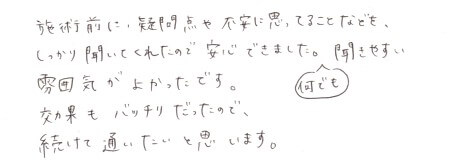 施術前に、疑問点や不安に思ってることなどを、
しっかり聞いてくれたので安心できました。聞きやすい
雰囲気がよかったです。
何でも
効果もバッチリだったので、
続けて通いたいと思います。